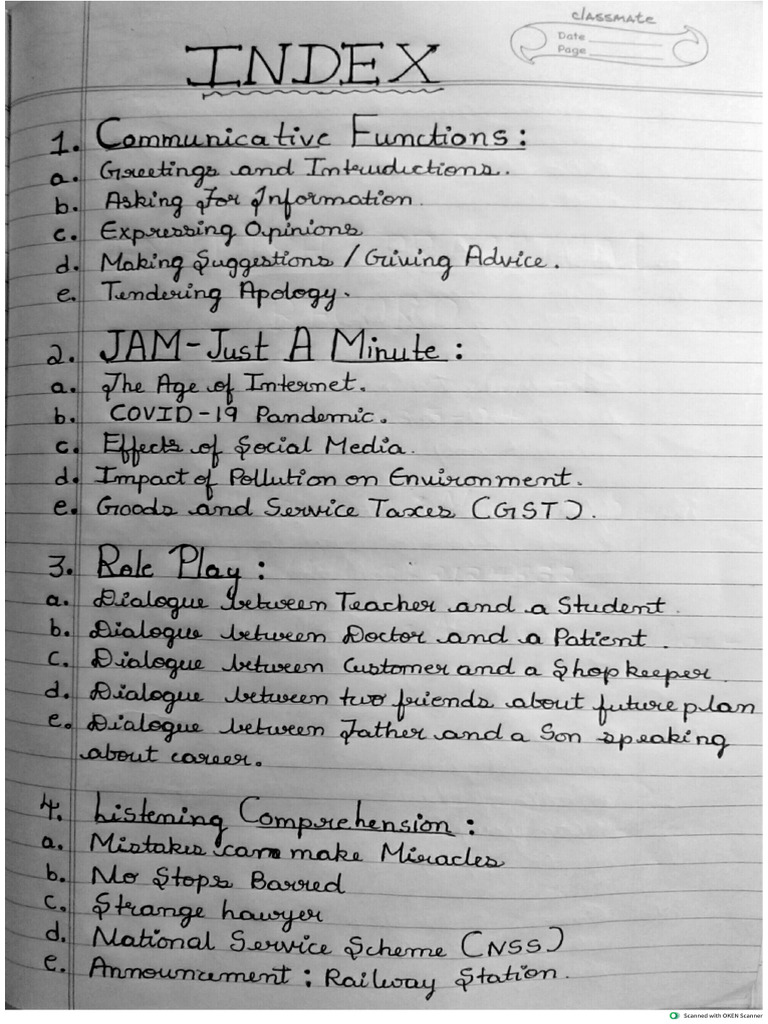 classmate
Date
Page
INDEX
1. Communicative Functions:
a. Greetings and Intruductions.
b. Asking For Information.
c. Expressing Opinions
d. Making Suggestions / Giving Advice.
e. Tendering Apology.
2. JAM-Just A Minute:
a. The Age of Internet.
b. COVID-19 Pandemic.
c. Effects of Social Media.
d. Impact of Pollution on Environment.
e. Goods and Service Taxes (GST).
3. Role Play:
a. Dialogue between Teacher and a Student.
b. Dialogue between Doctor and a Patient.
c. Dialogue between Customer and a Shopkeeper.
d. Dialogue between two friends about future plan
e. Dialogue between Father and a Son speaking
about career.
4. Listening Comprehension:
a. Mistakes can make Miracles
b. No Stops Barred
c. Strange hawyer
d. National Service Scheme (NSS)
e. Announcement: Railway Station.
Scanned with OKEN Scanner